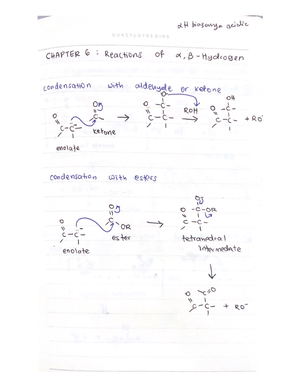 αH biasanya acidic
CHAPTER 6 : Reactions of α,β-Hydrogen
condensation with aldehyde or ketone
O
O
O
OH
C
C
ROH
C
O
/C-C-
/C-C-
/C-C-
+ RO
ketone
enolate
condensation with esters
O
O
O
O
C
C-OR
/C-C-
OR
/C-C-
ester
tetrahedral
enolate
intermediate
O
C=O
/C-C-
+ RO⁻